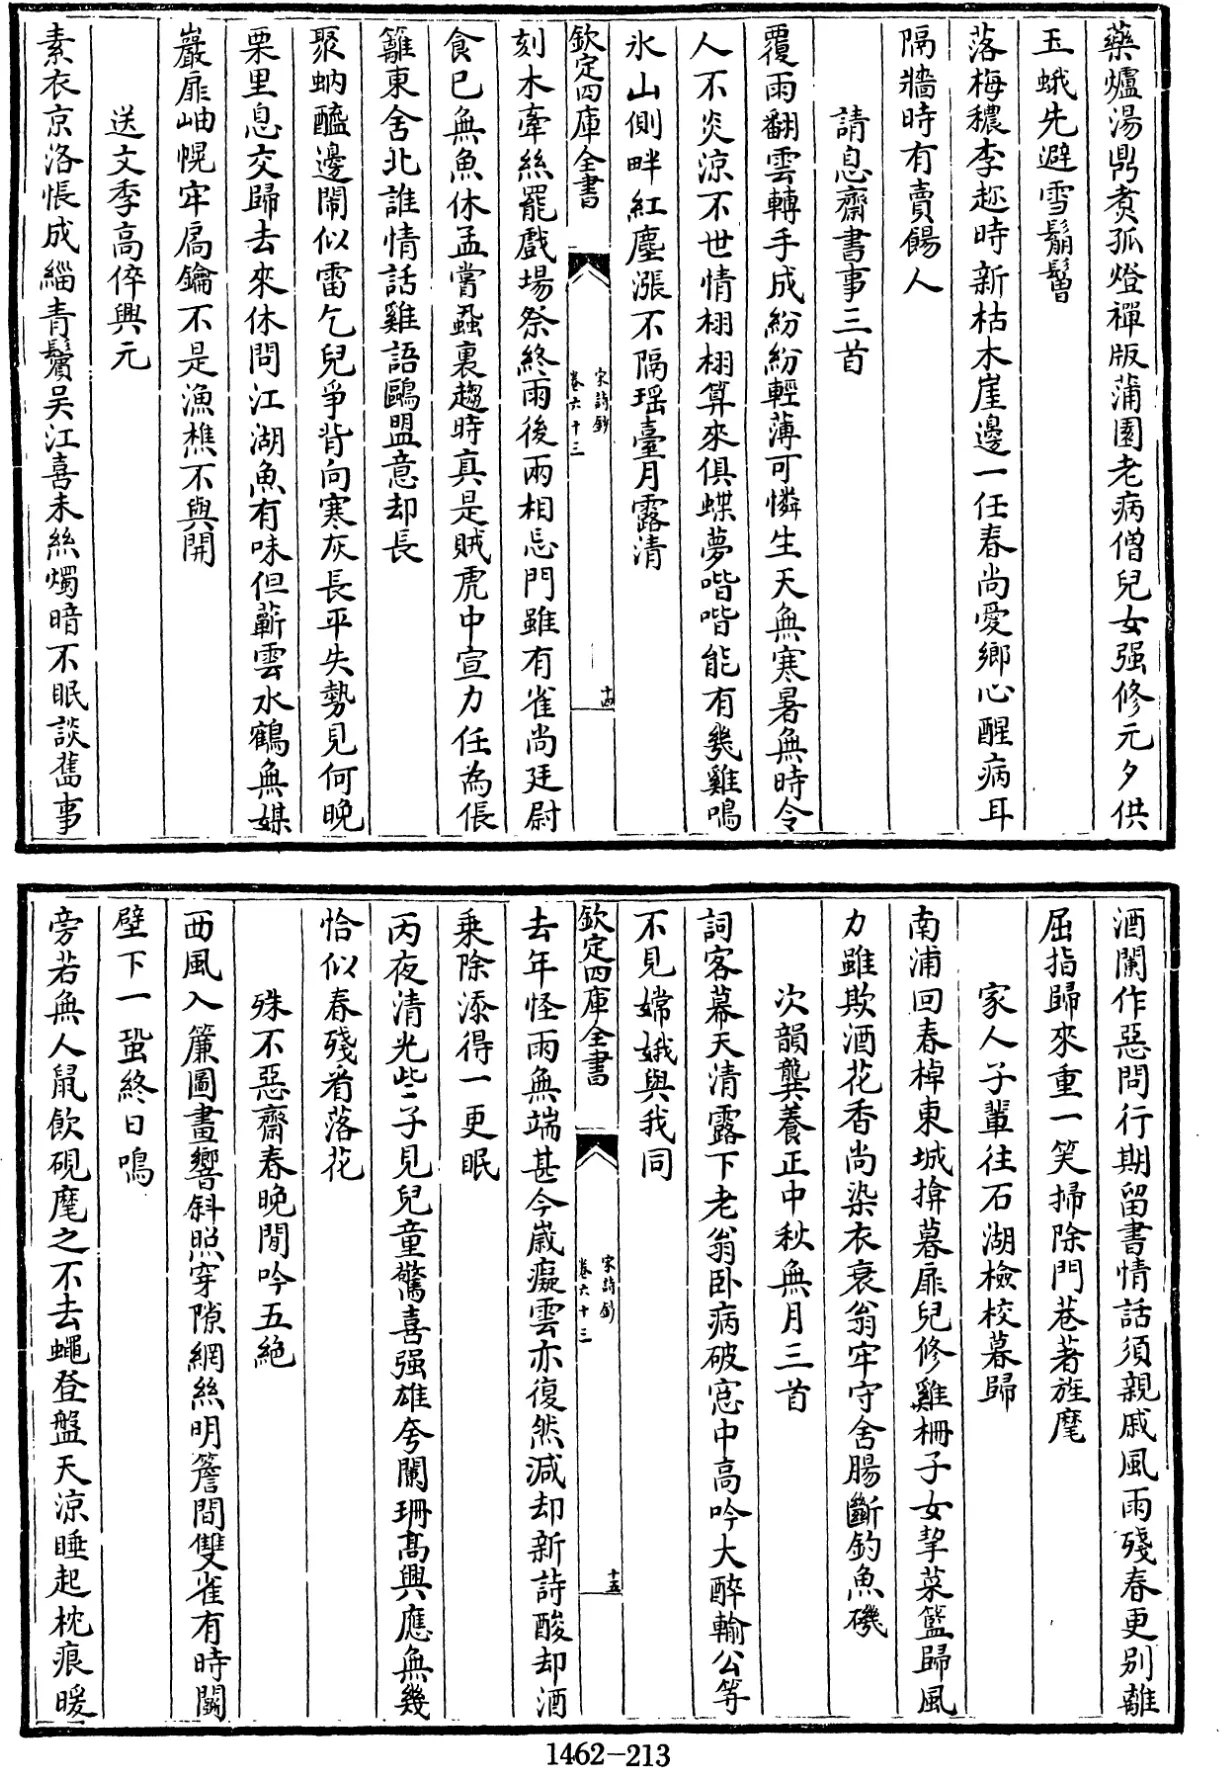 藥爐湯鼎煑孤燈禪版蒲團老病僧兒女强修元夕供
玉蛾先避雪鬅鬙
落梅穠李趂時新枯木崖邊一任春尚愛鄉心醒病耳
隔牆時有賣餳人
請息齋書事三首
覆雨翻雲轉手成紛紛輕薄可憐生天無寒暑無時令
人不炎涼不世情栩栩算來俱蝶夢喈喈能有幾雞鳴
氷山側畔紅塵漲不隔瑶臺月露清
欽定四庫全書
宋詩鈔
卷六十三
十四
刻木牽絲罷戲場祭終雨後兩相忘門雖有雀尚廷尉
食已無魚休孟嘗蝨裏趨時真是賊虎中宣力任為倀
籬東舍北誰情話雞語鷗盟意却長
聚蚋醯邊鬧似雷乞兒爭背向寒灰長平失勢見何晚
栗里息交歸去來休問江湖魚有味但蘄雲水鶴無媒
巖扉岫幌牢扃鑰不是漁樵不與開
送文季高倅興元
素衣京洛悵成緇青鬢吳江喜未絲燭暗不眠談舊事
酒闌作惡問行期留書情話須親戚風雨殘春更别離
屈指歸來重一笑掃除門巷著旌麾
家人子輩往石湖檢校暮歸
南浦回春棹東城揜暮扉兒修雞柵子女挈菜籃歸風
力雖欺酒花香尚染衣衰翁牢守舍腸斷釣魚磯
次韻龔養正中秋無月三首
詞客幕天清露下老翁卧病破窓中高吟大醉輸公等
不見嫦娥與我同
欽定四庫全書
宋詩鈔
卷六十三
十五
去年怪雨無端甚今歲癡雲亦復然減却新詩酸却酒
乗除添得一更眠
丙夜清光些子見兒童驚喜强雄夸闌珊髙興應無幾
恰似春殘看落花
殊不惡齋春晚閒吟五絶
西風入簾圖畫響斜照穿隙網絲明簷間雙雀有時闘
壁下一蛩終日鳴
旁若無人鼠飲硯麾之不去蠅登盤天涼睡起枕痕暖
1462-213